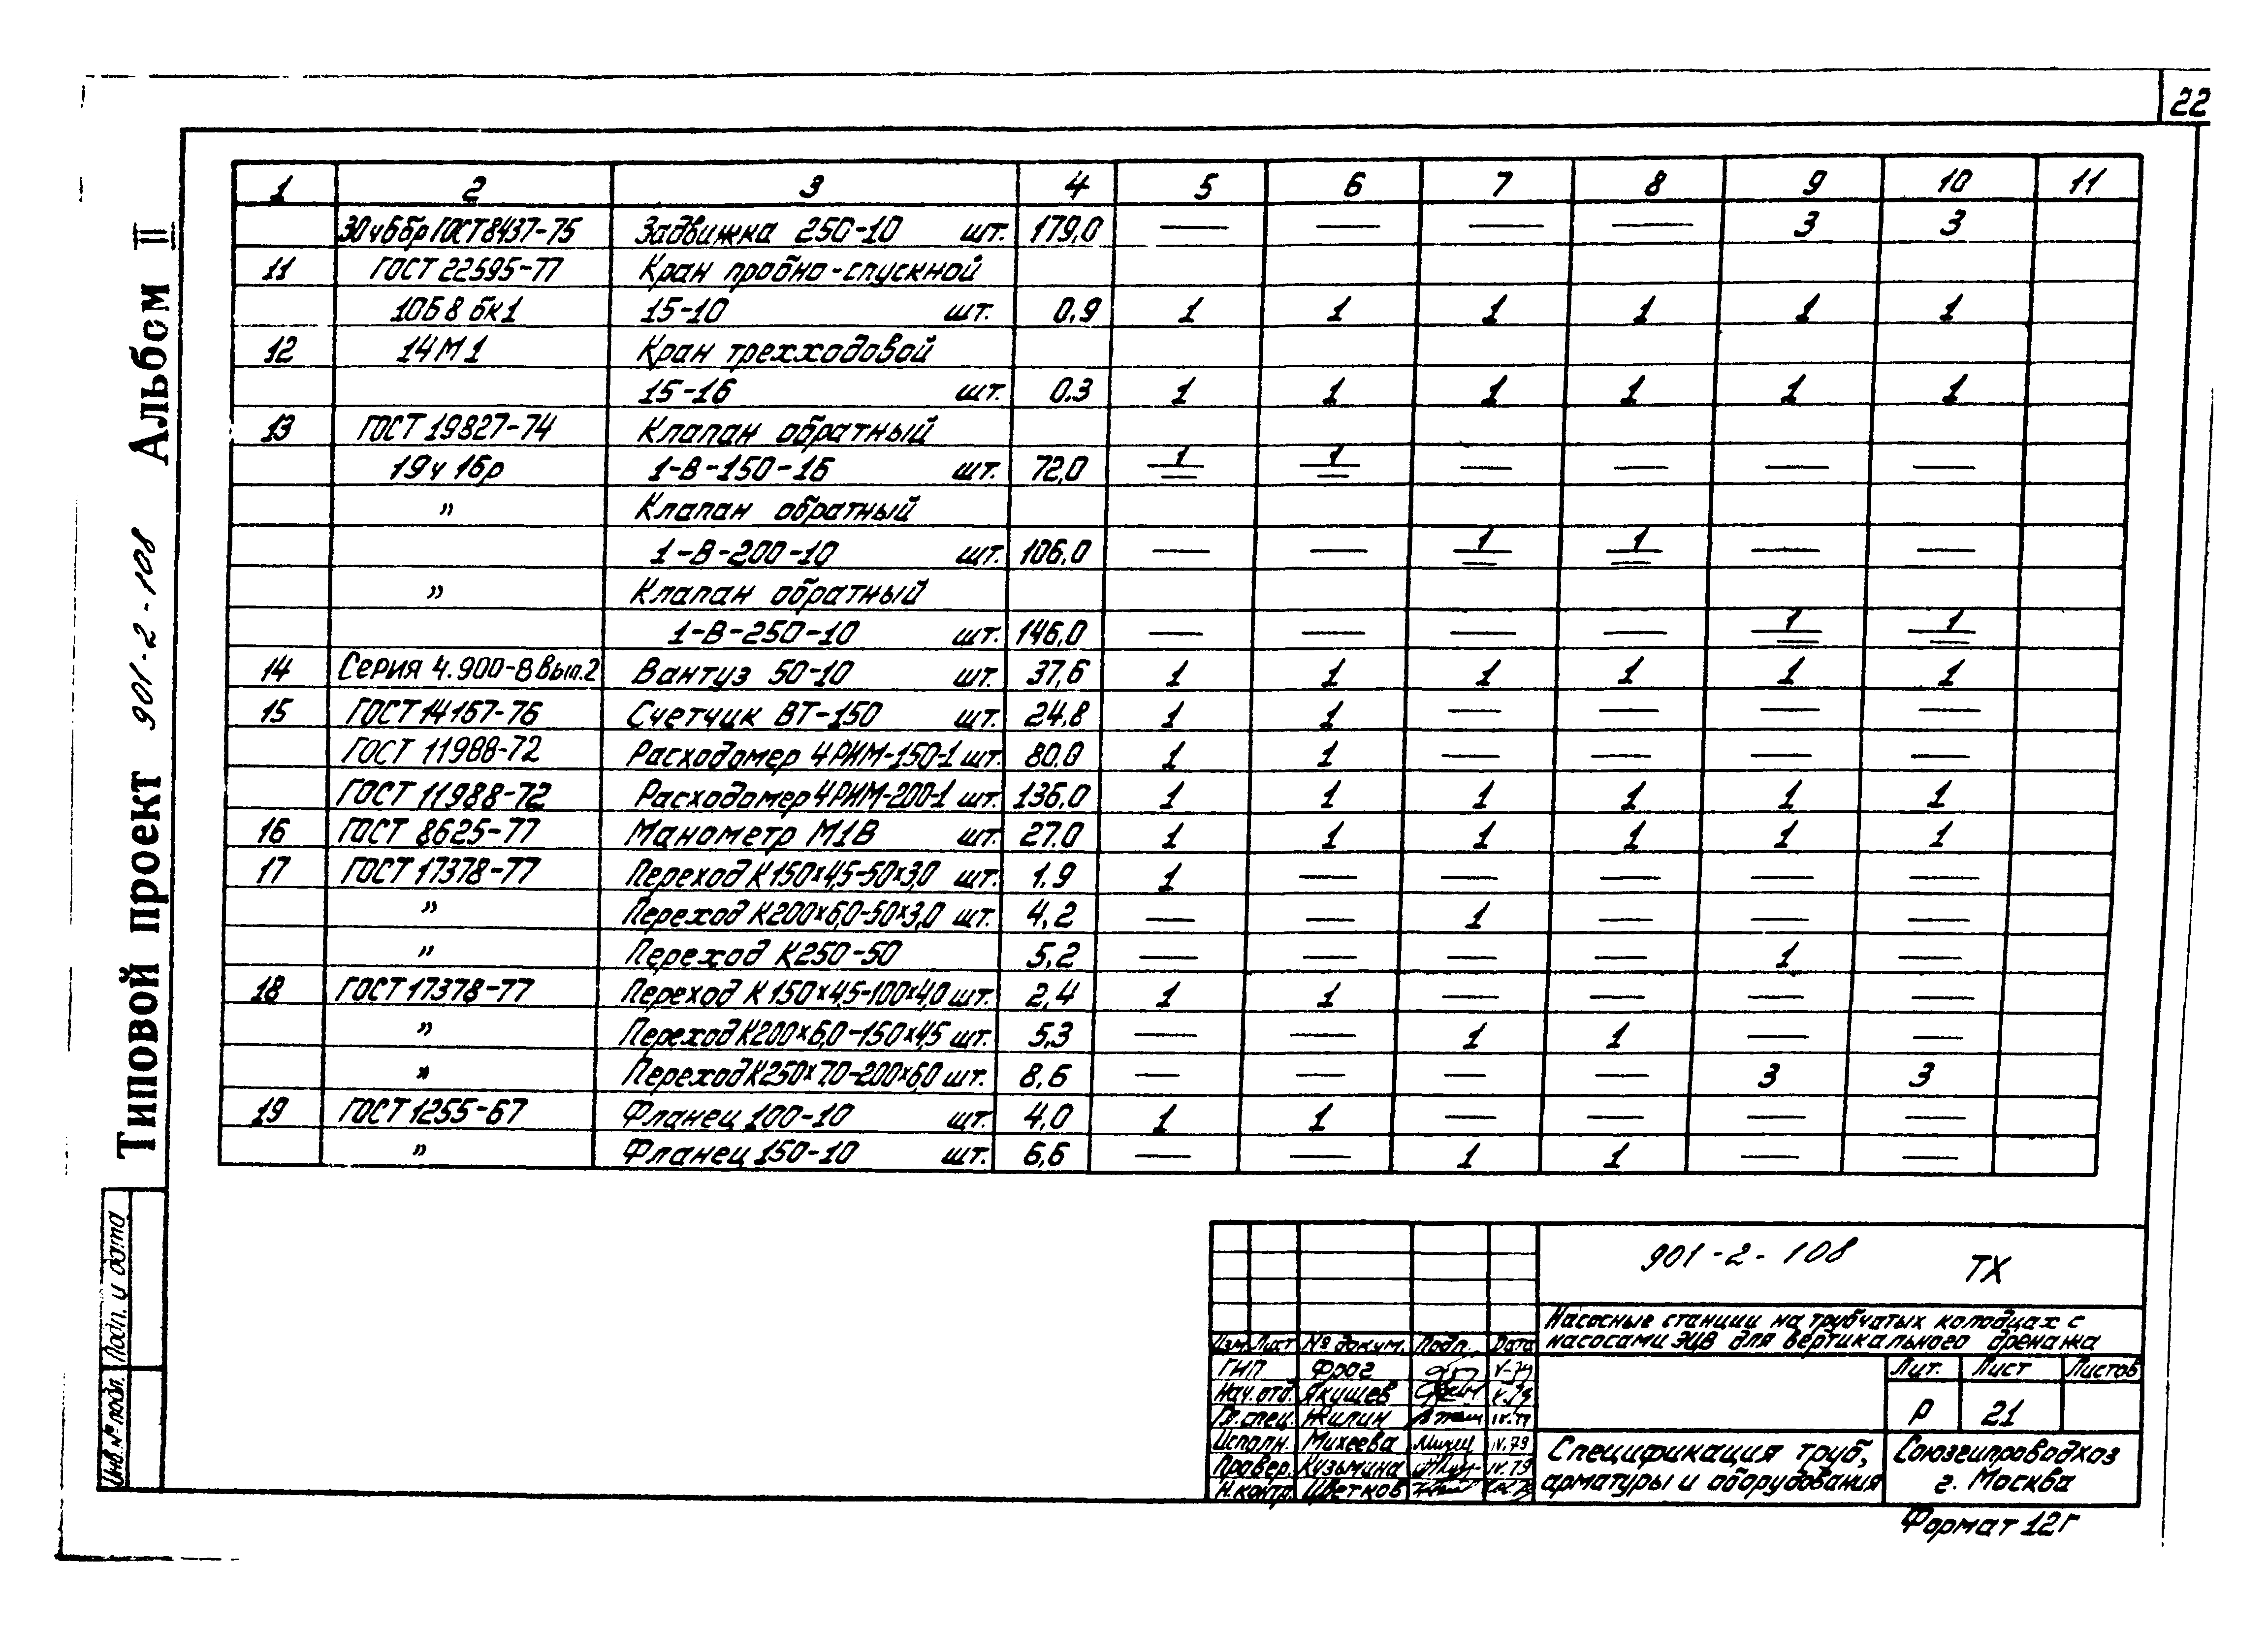 22
Типовой проект 901-2-108 Альбом II
1 2 3 4 5 6 7 8 9 10 11
30ч6бр ГОСТ 8437-75 Задвижка 250-10 шт. 179,0 — — — — 3 3
11 ГОСТ 22595-77 Кран пробно-спускной
10Б8бк1 15-10 шт. 0.9 1 1 1 1 1 1
12 14М1 Кран трехходовой
15-16 шт. 0.3 1 1 1 1 1 1
13 ГОСТ 19827-74 Клапан обратный
19ч16р 1-В-150-16 шт. 72,0 1/— 1/— — — — —
" Клапан обратный
1-В-200-10 шт. 106,0 — — 1/— 1/— — —
" Клапан обратный
1-В-250-10 шт. 146,0 — — — — 1/— 1/—
14 Серия 4.900-8 Вып.2 Вантуз 50-10 шт. 37,6 1 1 1 1 1 1
15 ГОСТ 14167-76 Счетчик ВТ-150 шт. 24,8 1 1 — — — —
ГОСТ 11988-72 Расходомер 4РИМ-150-1 шт. 80.0 1 1 — — — —
ГОСТ 11988-72 Расходомер 4РИМ-200-1 шт. 136,0 1 1 1 1 1 1
16 ГОСТ 8625-77 Манометр М1В шт. 27.0 1 1 1 1 1 1
17 ГОСТ 17378-77 Переход К150×4,5-50×3,0 шт. 1.9 1 — — — — —
" Переход К200×6,0-50×3,0 шт. 4,2 — — 1 — — —
" Переход К250-50 5,2 — — — — 1 —
18 ГОСТ 17378-77 Переход К150×4,5-100×4,0 шт. 2,4 1 1 — — — —
" Переход К200×6,0-150×4,5 шт. 5,3 — — 1 1 — —
" Переход К250×7,0-200×6,0 шт. 8,6 — — — — 3 3
19 ГОСТ 1255-67 Фланец 100-10 шт. 4,0 1 1 — — — —
" Фланец 150-10 шт. 6,6 — — 1 1 — —
Инв. № подл. Подп. и дата
901-2-108 ТХ
Насосные станции на трубчатых колодцах с
насосами ЭЦВ для вертикального дренажа
Изм. Лист № докум. Подп. Дата
ГИП Фрог V-79
Нач.отд. Якушев V.79
Гл.спец. Жилин IV.79
Исполн. Михеева IV.79
Провер. Кузьмина IV.79
Н.контр. Цветков
Лит. Лист Листов
Р 21
Спецификация труб,
арматуры и оборудования
Союзгипроводхоз
г. Москва
Формат 12Г